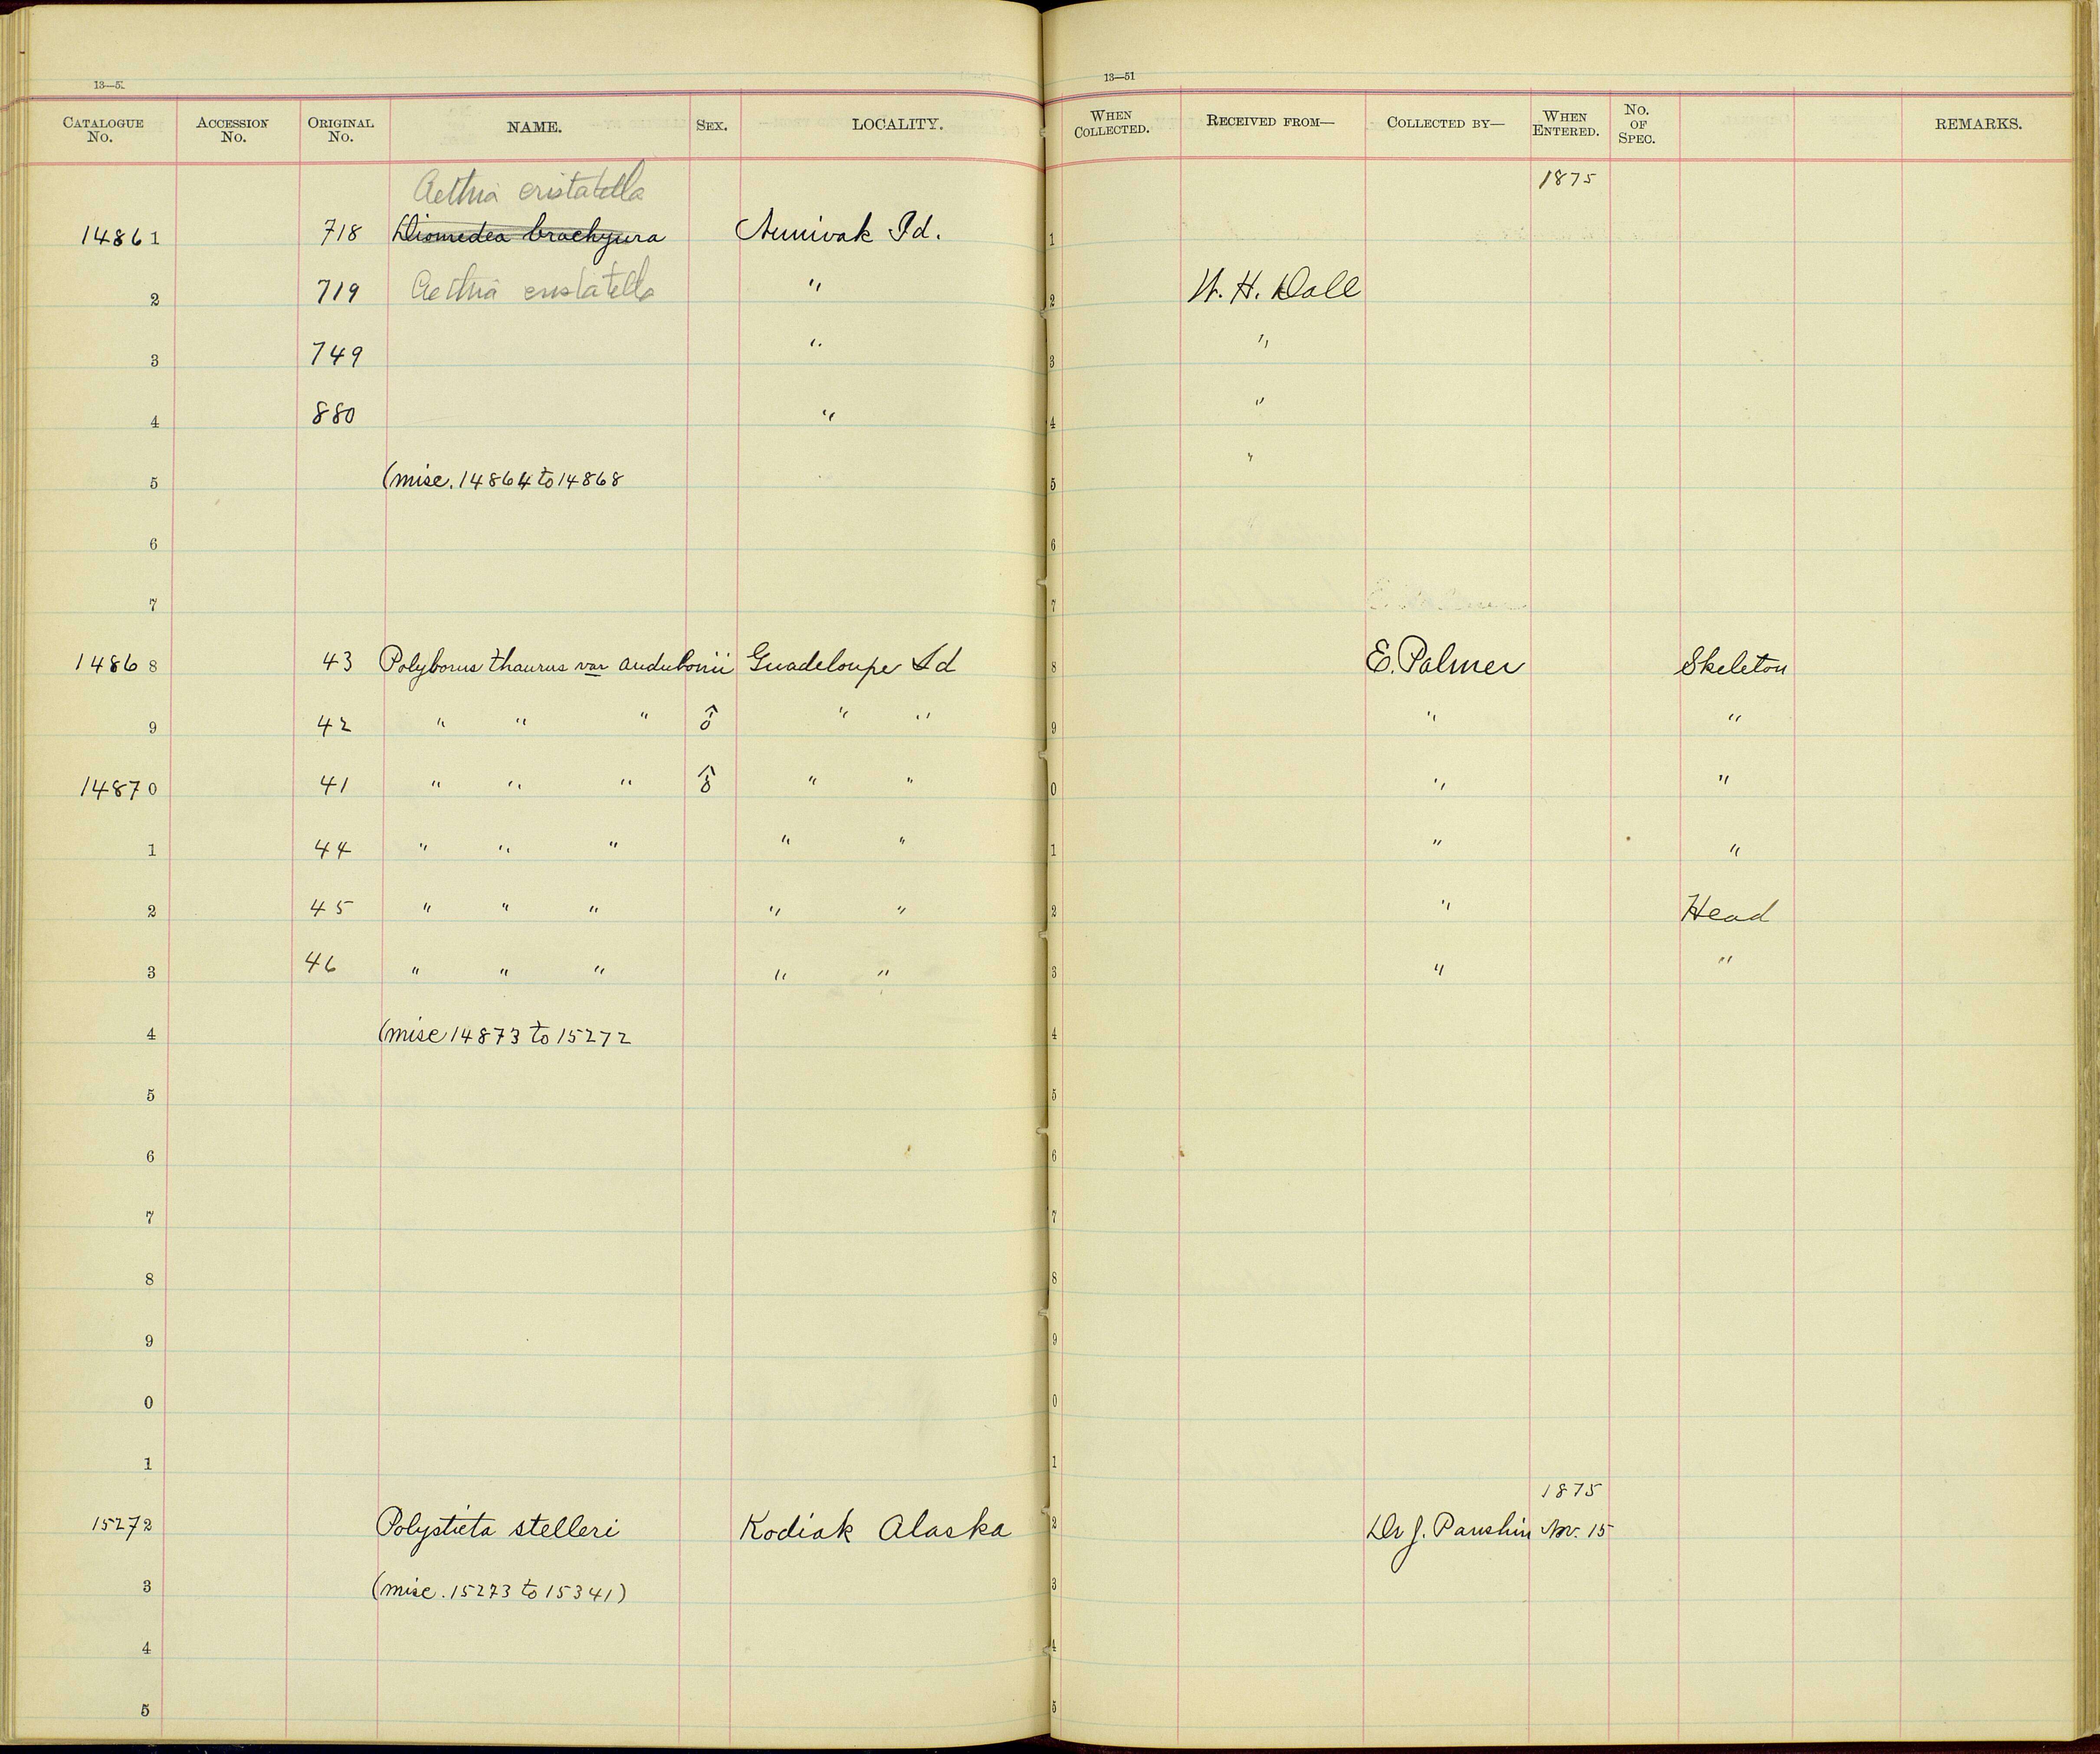 13—5
13—51
CATALOGUE No. ACCESSION No. ORIGINAL No. NAME. SEX. LOCALITY. WHEN COLLECTED. RECEIVED FROM— COLLECTED BY— WHEN ENTERED. No. OF SPEC. REMARKS.
Aethia cristatella 1875
14861 718 Diomedea brachyura Nunivak Id. 1
2 719 Aethia cristatella " 2 W. H. Dall
3 749 " 3 "
4 880 " 4 "
5 (misc. 14864 to 14868 5 "
6 6 "
7 7
14868 43 Polyborus tharus var audubonii Guadeloupe Id 8 E. Palmer Skeleton
9 42 " " " ♂ " " 9 " "
14870 41 " " " ♂ " " 0 " "
1 44 " " " " " 1 " "
2 45 " " " " " 2 " Head
3 46 " " " " " 3 " "
4 (misc 14873 to 15272 4
5 5
6 6
7 7
8 8
9 9
0 0
1 1
1875
15272 Polysticta stelleri Kodiak Alaska 2 Dr J. Panshin Nov. 15
3 (misc. 15273 to 15341) 3
4 4
5 5